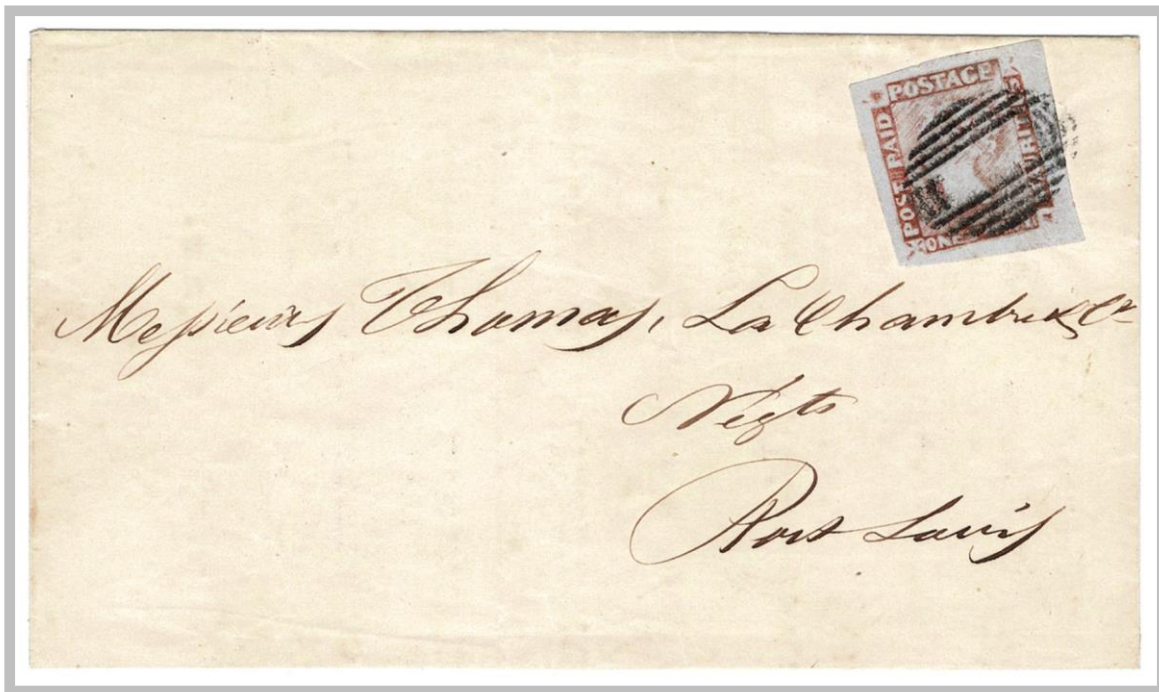 POSTAGE
POST PAID
ONE
Messieurs Thomas, La Chambre & Cie
Negts
Port Louis